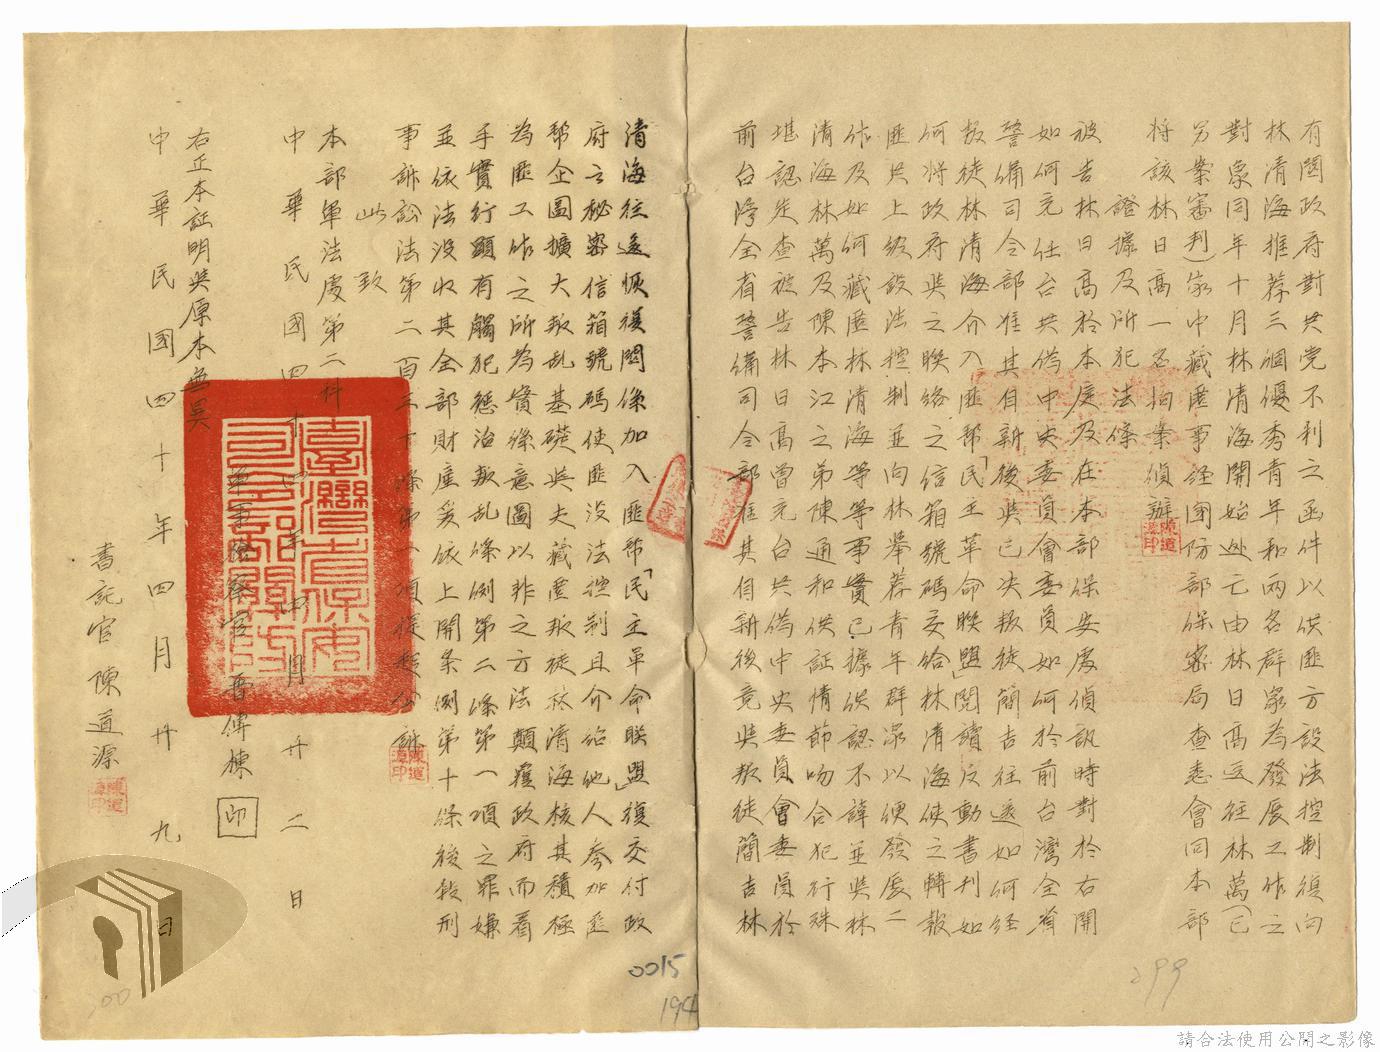 有關政府對共党不利之函件以供匪方設法控制復向
林清海推荐三個優秀青年和兩名群眾為發展工作之
對象同年十月林清海開始逃亡由林日高送往林萬(已
另案審判)家中藏匿事經國防部保密局查悉會同本部
將該林日高一名拘案偵辦
證據及所犯法條
被告林日高於本庭及在本部保安處偵訊時對於右開
如何充任台共偽中央委員會委員如何於前台灣全省
警備司令部准其自新後與已決叛徒簡吉往返如何經
叛徒林清海介入匪幫「民主革命聯盟」閱讀反動書刊如
何將政府與之聯絡之信箱號碼交給林清海使之轉報
匪共上級設法控制並向林舉荐青年群眾以便發展工
作及如何藏匿林清海等等事實已據供認不諱並與林
清海林萬及陳本江之弟陳通和供証情節吻合犯行殊
堪認定查被告林日高曾充台共偽中央委員會委員於
前台灣全省警備司令部准其自新後竟與叛徒簡吉林
清海往返恢復關係加入匪幫「民主革命聯盟」復交付政
府之秘密信箱號碼使匪設法控制且介紹他人參加匪
幫企圖擴大叛乱基礎與夫藏匿叛徒林清海核其積極
為匪工作之所為實係意圖以非之方法顛覆政府而着
手實行顯有觸犯懲治叛乱條例第二條第一項之罪嫌
並依法没收其全部財產爰依上開条例第十條後段刑
事訴訟法第二百三十條第一項提起公訴
此致
本部軍法處第二科
中華民國四十四年 月廿二日
軍事檢察官曹傳棟 印
右正本証明與原本無異
中華民國四十年四月廿九日
書記官陳道源
陳道源印
0015
194
299
請合法使用公開之影像